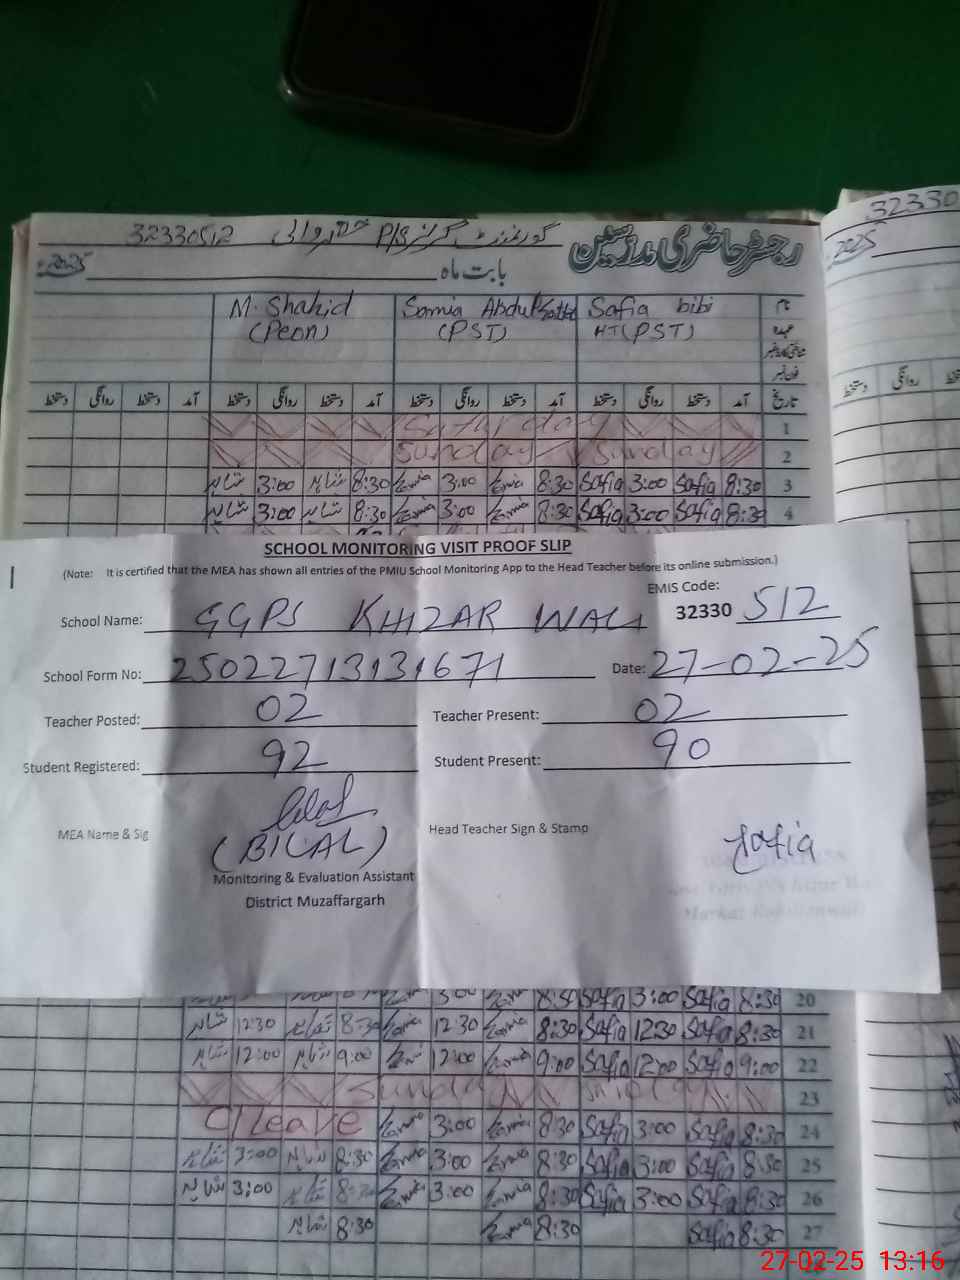 32330
2025
رجسٹر حاضری مدرسین
گورنمنٹ گرلز P/S خضر والی 32330512
بابت ماہ 2025
M. Shahid Samia Abdul Safia bibi نام
(Peon) (PST) HT(PST) عہدہ
فون نمبر
دستخط روانگی دستخط آمد دستخط روانگی دستخط آمد دستخط روانگی دستخط آمد دستخط روانگی دستخط آمد تاریخ
Saturday 1
Sunday Sunday 2
شاہد 3:00 شاہد 8:30 Samia 3:00 Samia 8:30 Safia 3:00 Safia 8:30 3
شاہد 3:00 شاہد 8:30 Samia 3:00 Samia 8:30 Safia 3:00 Safia 8:30 4
SCHOOL MONITORING VISIT PROOF SLIP
(Note: It is certified that the MEA has shown all entries of the PMIU School Monitoring App to the Head Teacher before its online submission.)
EMIS Code:
School Name: GGPS KHIZAR WALI 32330 512
School Form No: 25022713131671 Date: 27-02-25
Teacher Posted: 02 Teacher Present: 02
Student Registered: 92 Student Present: 90
MEA Name & Sig Bilal Head Teacher Sign & Stamp Safia
(BILAL)
Monitoring & Evaluation Assistant
District Muzaffargarh
3:00 Samia 8:30 Safia 3:00 Safia 8:30 20
شاہد 12:30 شاہد 8:30 Samia 12:30 Samia 8:30 Safia 12:30 Safia 8:30 21
شاہد 12:00 شاہد 9:00 Samia 12:00 Samia 9:00 Safia 12:00 Safia 9:00 22
Sunday 23
C/Leave Samia 3:00 Samia 8:30 Safia 3:00 Safia 8:30 24
شاہد 3:00 شاہد 8:30 Samia 3:00 Samia 8:30 Safia 3:00 Safia 8:30 25
شاہد 3:00 شاہد 8:30 Samia 3:00 Samia 8:30 Safia 3:00 Safia 8:30 26
شاہد 8:30 Samia 8:30 Safia 8:30 27
27-02-25 13:16